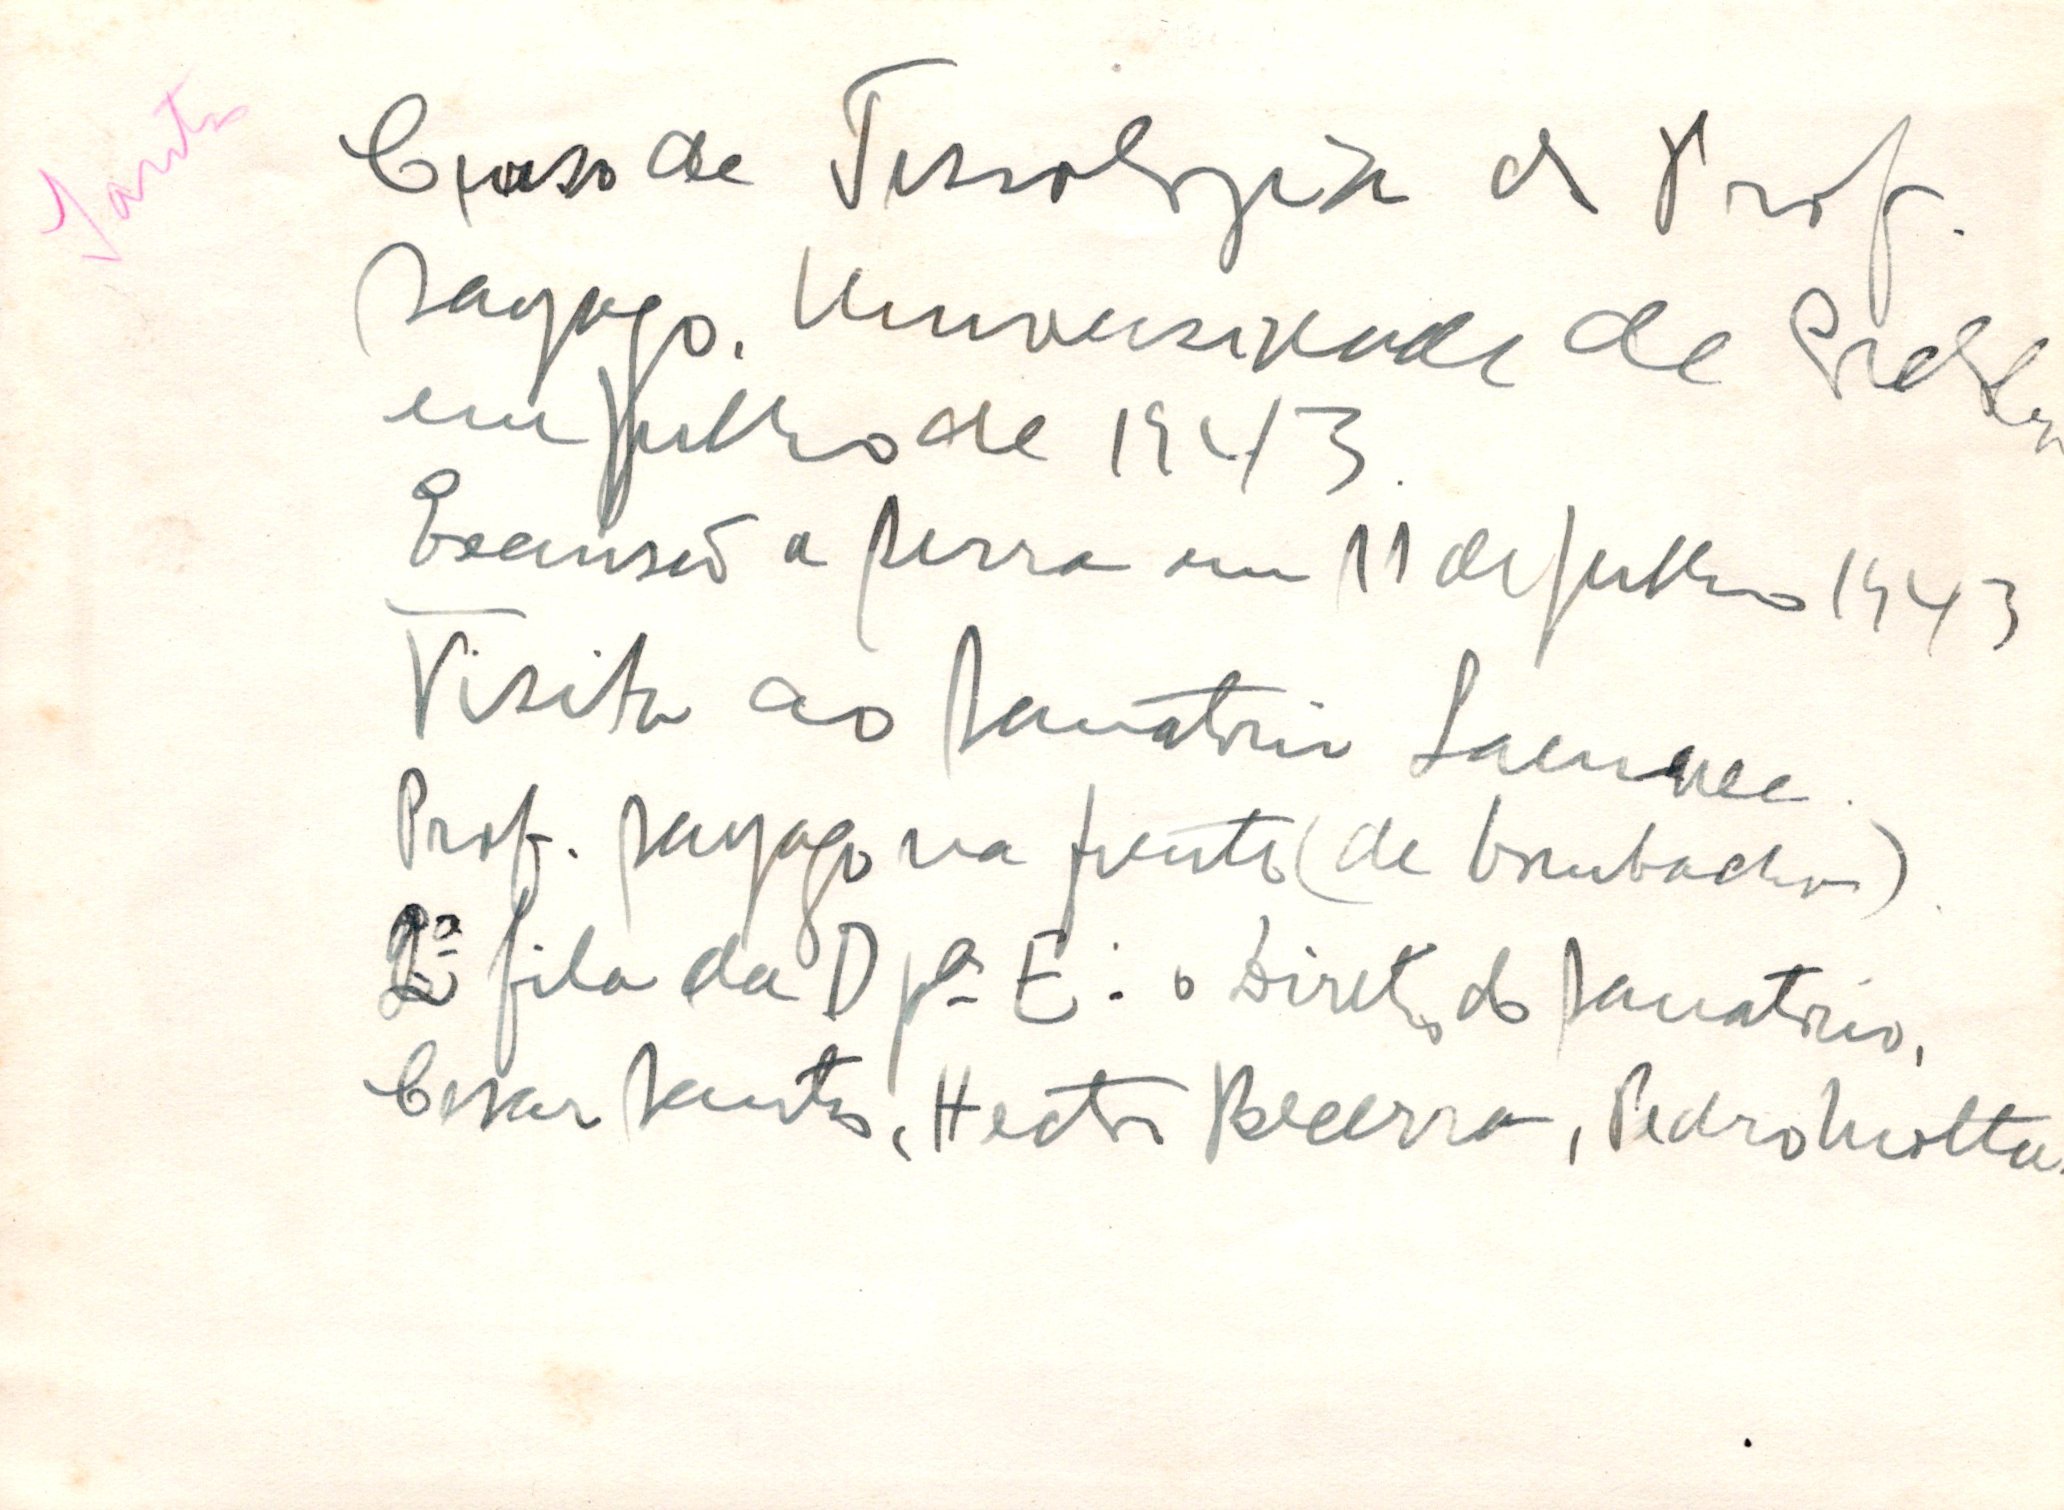 Santos
Curso de Tisiologia do Prof.
Sayago. Universidade de
em Julho de 1943.
Excursão a serra em 11 de Julho 1943
Visita ao Sanatorio Laennec.
Prof. Sayago na frente (de bombacha).
2ª fila da D pª E: o Diretor do Sanatorio,
Cesar Santos, Hector Becerra, Pedro Motta.